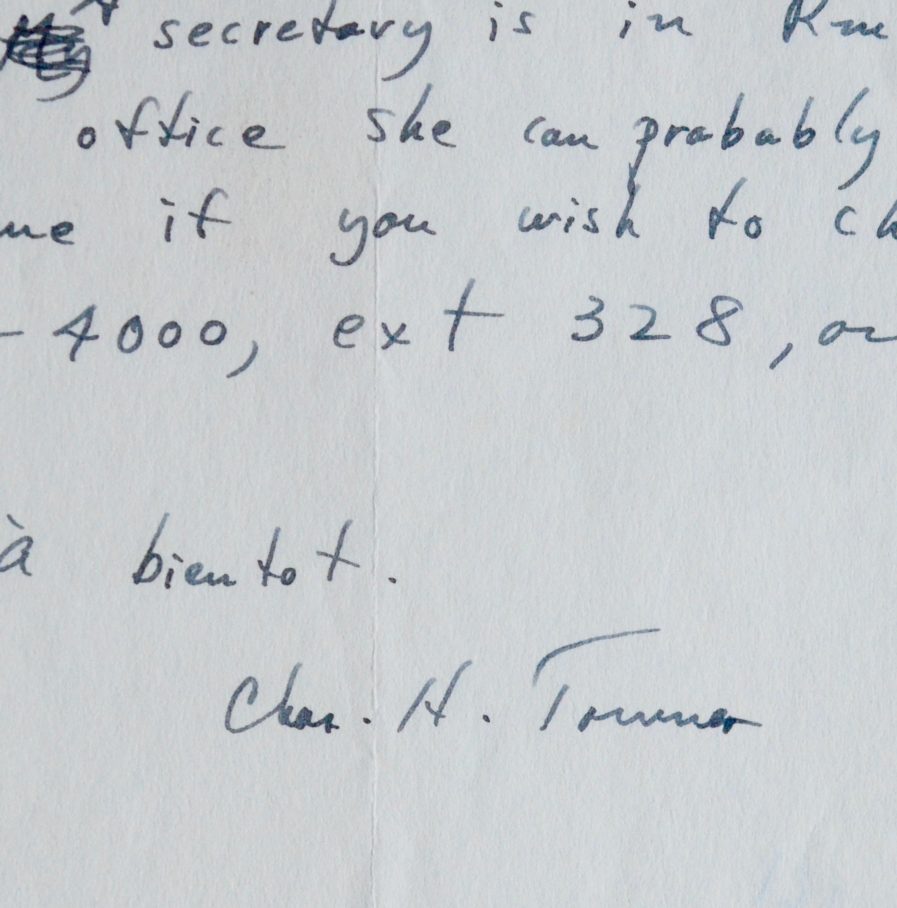 secretary is in Rm
office she can probably
me if you wish to ch
- 4000, ext 328, or
à bientot.
Chas. H. Townes